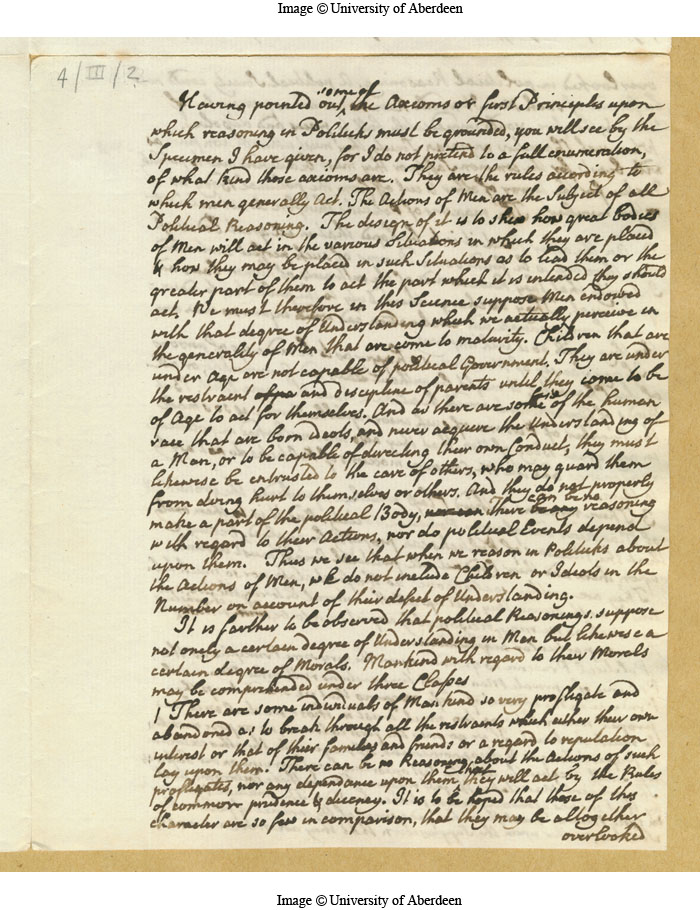 Image © University of Aberdeen
4/III/2
some of
Having pointed out ^ the Axioms or first Principles upon
which reasoning in Politicks must be grounded, you will see by the
Specimen I have given, for I do not pretend to a full enumeration,
of what kind those axioms are. They are the rules according to
which men generally Act. The Actions of Men are the Subject of all
Political Reasoning. The design of it is to shew how great bodies
of Men will act in the various Situations in which they are placed
& how they may be placed in such Situations as to lead them or the
greater part of them to act the part which it is intended they should
act. We must therefore in this Science suppose Men endowed
with that degree of Understanding which we actually perceive in
the generality of Men that are come to maturity. Children that are
under Age are not capable of political Government. They are under
the restraint and discipline of parents until they come to be
of Age to act for themselves. And as there are some of the human
race that are born Ideots, and never acquire the Understanding of
a Man, or to be capable of directing their own Conduct, they must
likewise be entrusted to the care of others, who may guard them
from doing hurt to themselves or others. And they do not properly
can be no
make a part of the political Body, There be any reasoning
with regard to their Actions, nor do political Events depend
upon them. Thus we see that when we reason in Politicks about
the Actions of Men, we do not include Children or Ideots in the
Number on account of their defect of Understanding.
It is farther to be observed that political Reasonings suppose
not onely a certain degree of Understanding in Men but likewise a
certain degree of Morals. Mankind with regard to their Morals
may be comprehended under three Classes
1 There are some individuals of Mankind so very profligate and
abandoned as to break through all the restraints which either their own
interest or that of their families and friends or a regard to reputation
lay upon them. There can be no Reasoning about the Actions of such
profligates, nor any dependance upon them that they will act by the Rules
of common prudence & decency. It is to be hoped that those of this
character are so few in comparison, that they may be altogether
overlooked
Image © University of Aberdeen